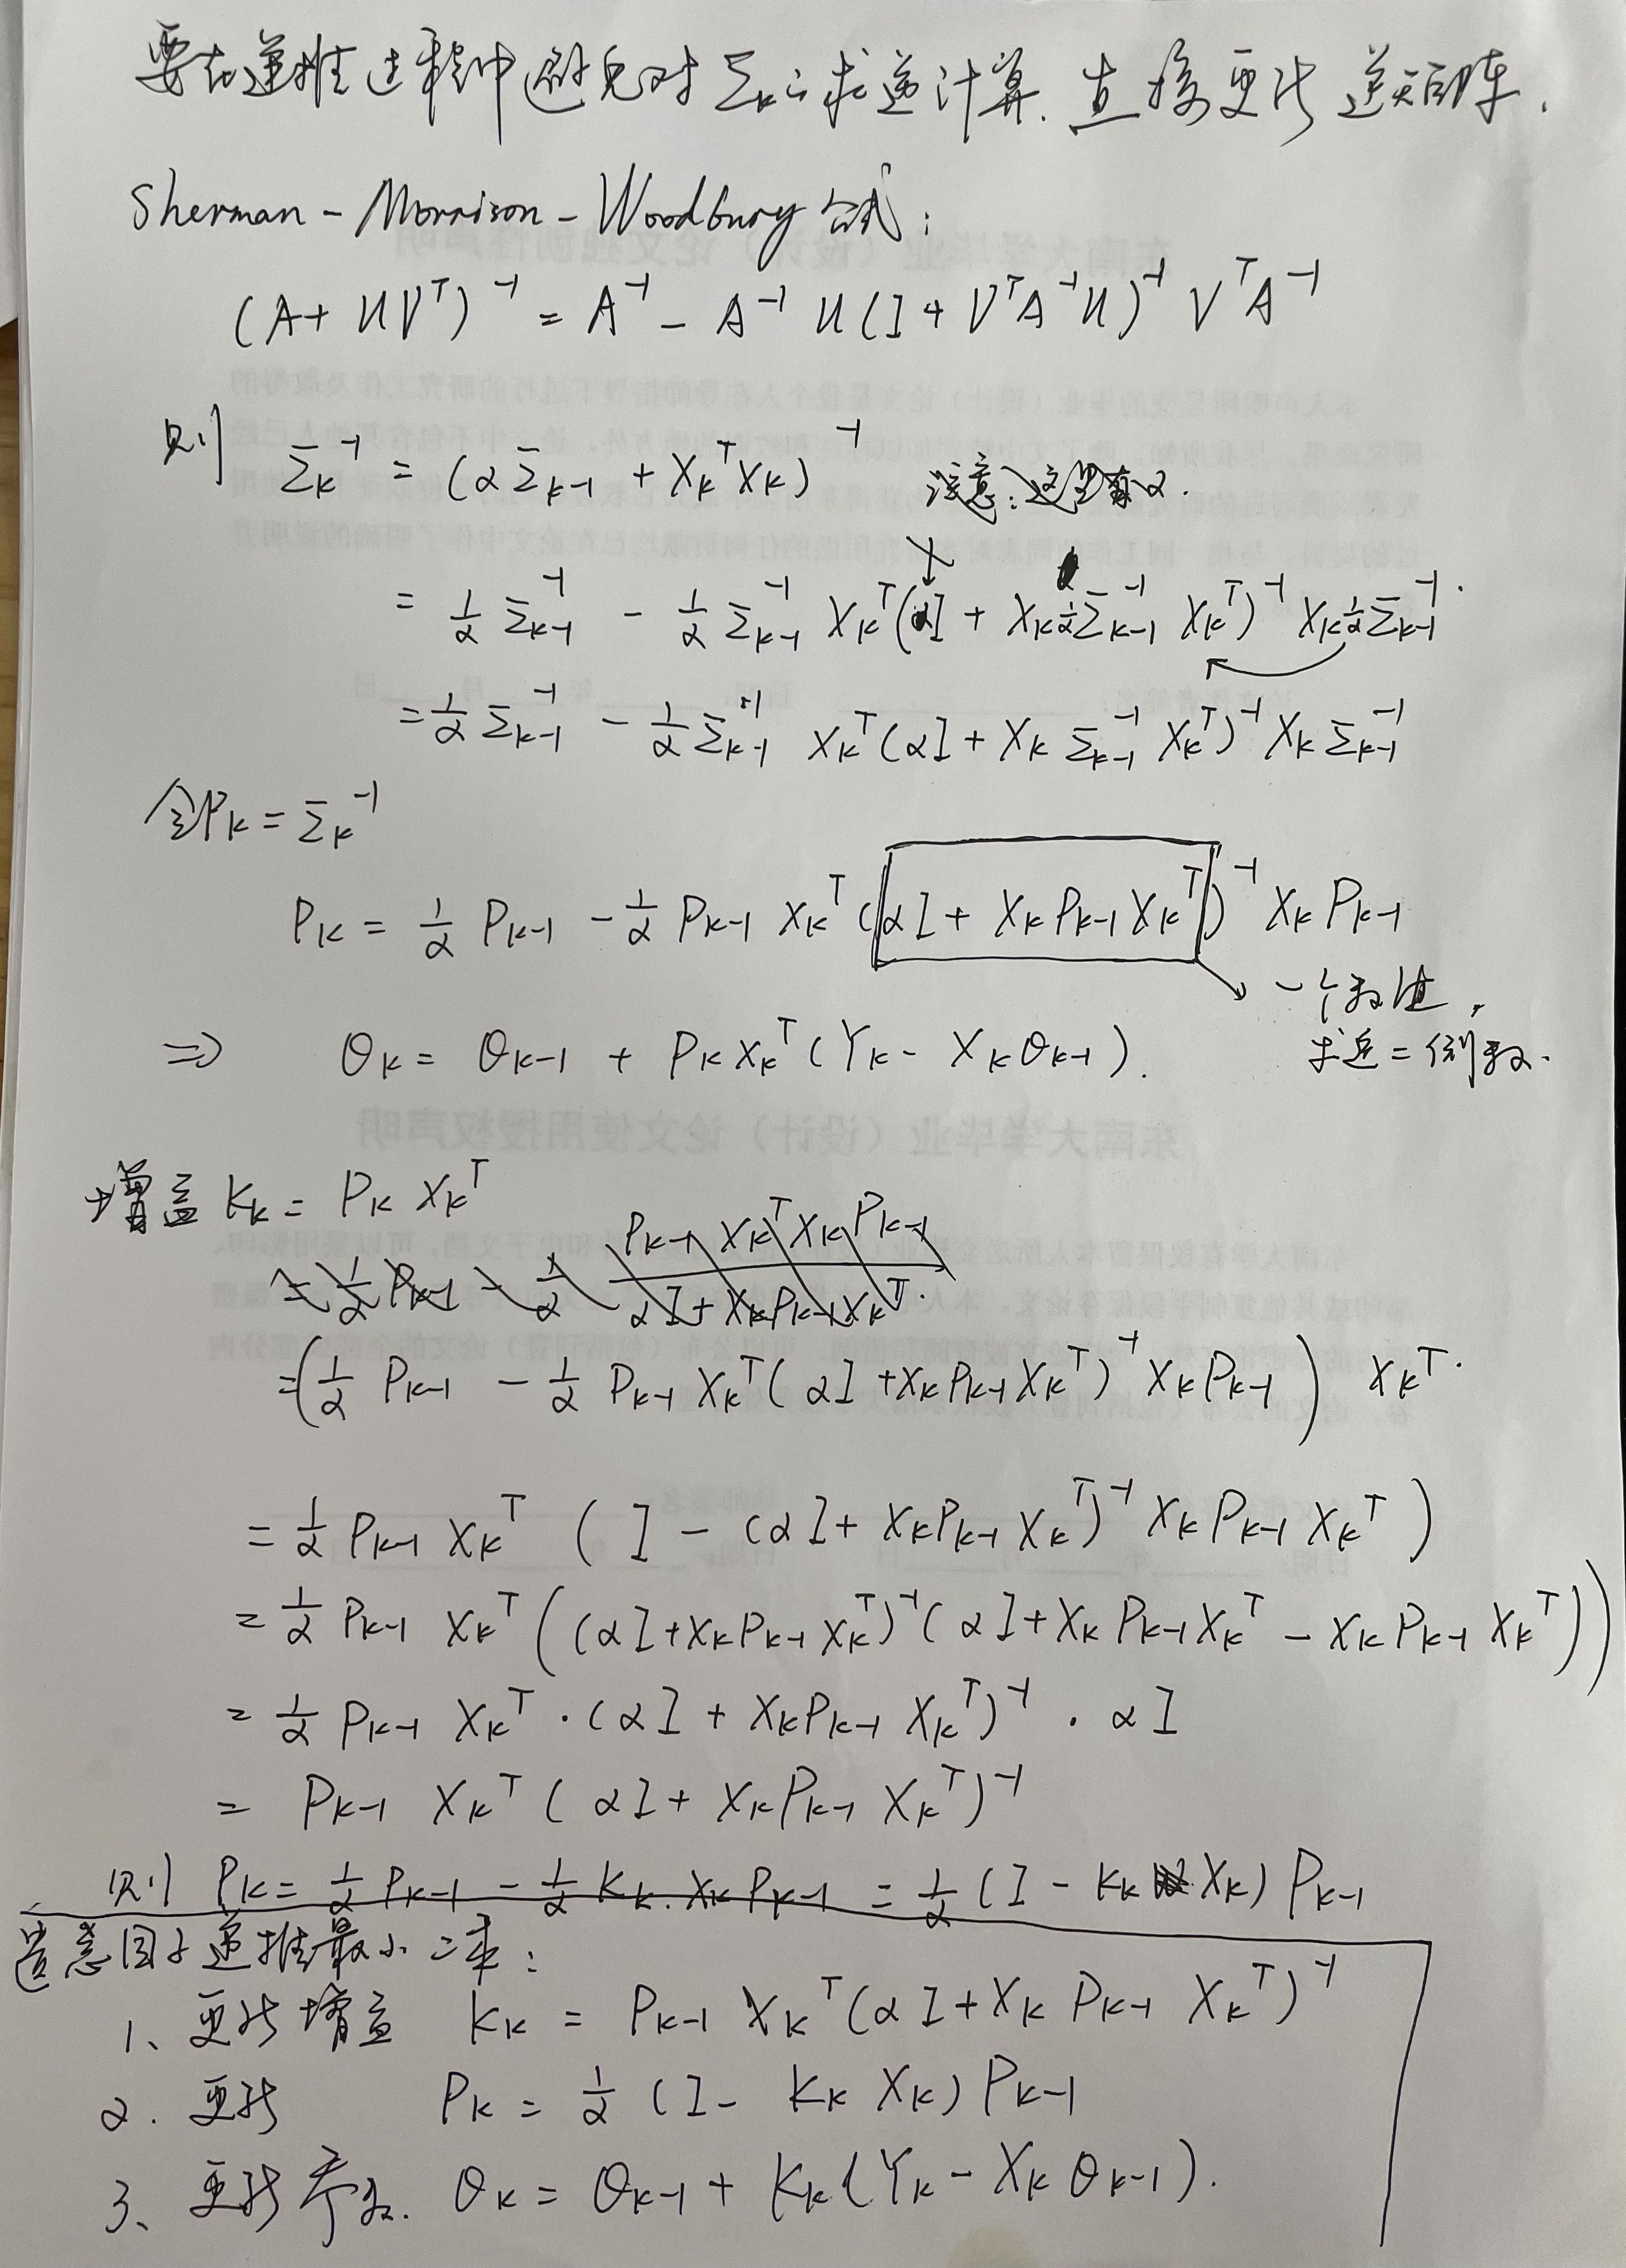 要在递推过程中避免对 Σₖ 求逆计算. 直接更新 逆矩阵.
Sherman - Morrison - Woodbury 公式:
(A + UVᵀ)⁻¹ = A⁻¹ - A⁻¹ U (I + VᵀA⁻¹U)⁻¹ VᵀA⁻¹
则 Σₖ⁻¹ = (αΣₖ₋₁ + XₖᵀXₖ)⁻¹ 注意:这里有α.
= 1/α Σₖ₋₁⁻¹ - 1/α Σₖ₋₁⁻¹ Xₖᵀ( I + Xₖ 1/α Σₖ₋₁⁻¹ Xₖᵀ)⁻¹ Xₖ 1/α Σₖ₋₁⁻¹.
= 1/α Σₖ₋₁⁻¹ - 1/α Σₖ₋₁⁻¹ Xₖᵀ(αI + Xₖ Σₖ₋₁⁻¹ Xₖᵀ)⁻¹ Xₖ Σₖ₋₁⁻¹
令Pₖ = Σₖ⁻¹
Pₖ = 1/α Pₖ₋₁ - 1/α Pₖ₋₁ Xₖᵀ(αI + XₖPₖ₋₁Xₖᵀ)⁻¹ XₖPₖ₋₁
一个数值,
⇒ θₖ = θₖ₋₁ + PₖXₖᵀ(Yₖ - Xₖθₖ₋₁). 求逆=倒数.
增益 Kₖ = Pₖ Xₖᵀ
= 1/α Pₖ₋₁ - 1/α Pₖ₋₁XₖᵀXₖPₖ₋₁ / αI + XₖPₖ₋₁Xₖᵀ.
= (1/α Pₖ₋₁ - 1/α Pₖ₋₁Xₖᵀ(αI + XₖPₖ₋₁Xₖᵀ)⁻¹XₖPₖ₋₁) Xₖᵀ.
= 1/α Pₖ₋₁ Xₖᵀ (I - (αI + XₖPₖ₋₁Xₖᵀ)⁻¹XₖPₖ₋₁Xₖᵀ)
= 1/α Pₖ₋₁ Xₖᵀ((αI + XₖPₖ₋₁Xₖᵀ)⁻¹(αI + XₖPₖ₋₁Xₖᵀ - XₖPₖ₋₁Xₖᵀ))
= 1/α Pₖ₋₁ Xₖᵀ · (αI + XₖPₖ₋₁Xₖᵀ)⁻¹ · αI
= Pₖ₋₁ Xₖᵀ(αI + XₖPₖ₋₁Xₖᵀ)⁻¹
则 Pₖ = 1/α Pₖ₋₁ - 1/α Kₖ·XₖPₖ₋₁ = 1/α (I - KₖXₖ)Pₖ₋₁
遗忘因子递推最小二乘:
1、更新增益 Kₖ = Pₖ₋₁ Xₖᵀ(αI + XₖPₖ₋₁Xₖᵀ)⁻¹
2. 更新 Pₖ = 1/α (I - KₖXₖ)Pₖ₋₁
3、更新参数. θₖ = θₖ₋₁ + Kₖ(Yₖ - Xₖθₖ₋₁).